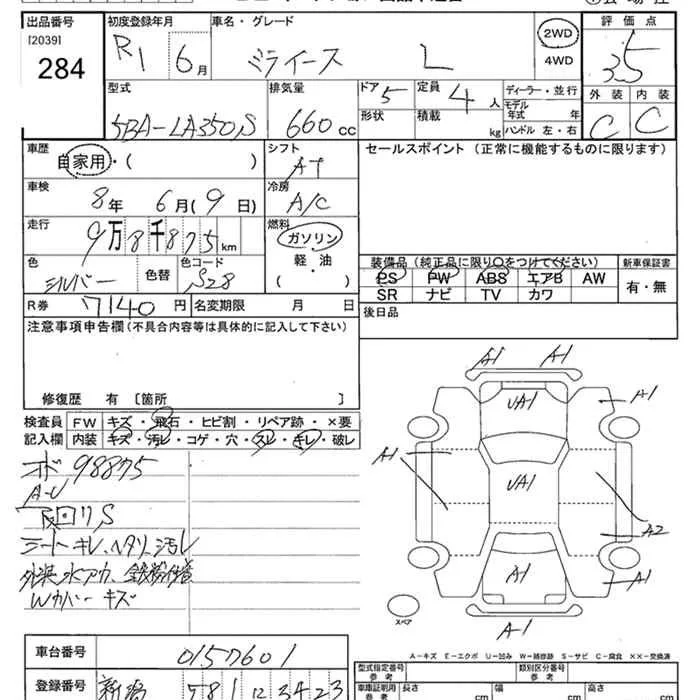 出品番号 初度登録年月 車名・グレード 評価点
[2039]
284 R1 6月 ミライース L 2WD 4WD 3.5
型式 排気量 ドア 5 定員 4人 ディーラー・並行 外装 内装
5BA-LA350S 660cc 形状 積載 kg モデル年式 年 C C
ハンドル 左・右
車歴 シフト セールスポイント (正常に機能するものに限ります)
自家用・( ) AT
車検 冷房
8年 6月(9日) A/C
走行 燃料
9万8千875km ガソリン
軽・油
( )
色 色替 色コード 装備品(純正品に限り○をつけてください) 新車保証書
シルバー S28 PS PW ABS エアB AW 有・無
SR ナビ TV カワ
R券 7140円 名変期限 月 日 後日品
注意事項申告欄(不具合内容等は具体的に記入して下さい)
修復歴 有 [箇所 ]
検査員 FW キズ・飛石・ヒビ割・リペア跡・×要
記入欄 内装 キズ・汚レ・コゲ・穴・スレ・キレ・破レ
オド 98875
下回りS
シートキレ、ヘタリ、汚レ
外装水アカ、鉄粉付着
Wカバーキズ
A1 A1
UA1 A1
A1 UA1
A2
A1 A1
スペア A-1
A-キズ E-エクボ U-凹み W-補修跡 S-サビ C-腐食 XX-交換済
車台番号 0157601
登録番号 新潟 581 に 3423
型式指定番号 参考 類別区分番号 参考
車庫証明用 参考 長さ cm 幅 cm 高さ cm